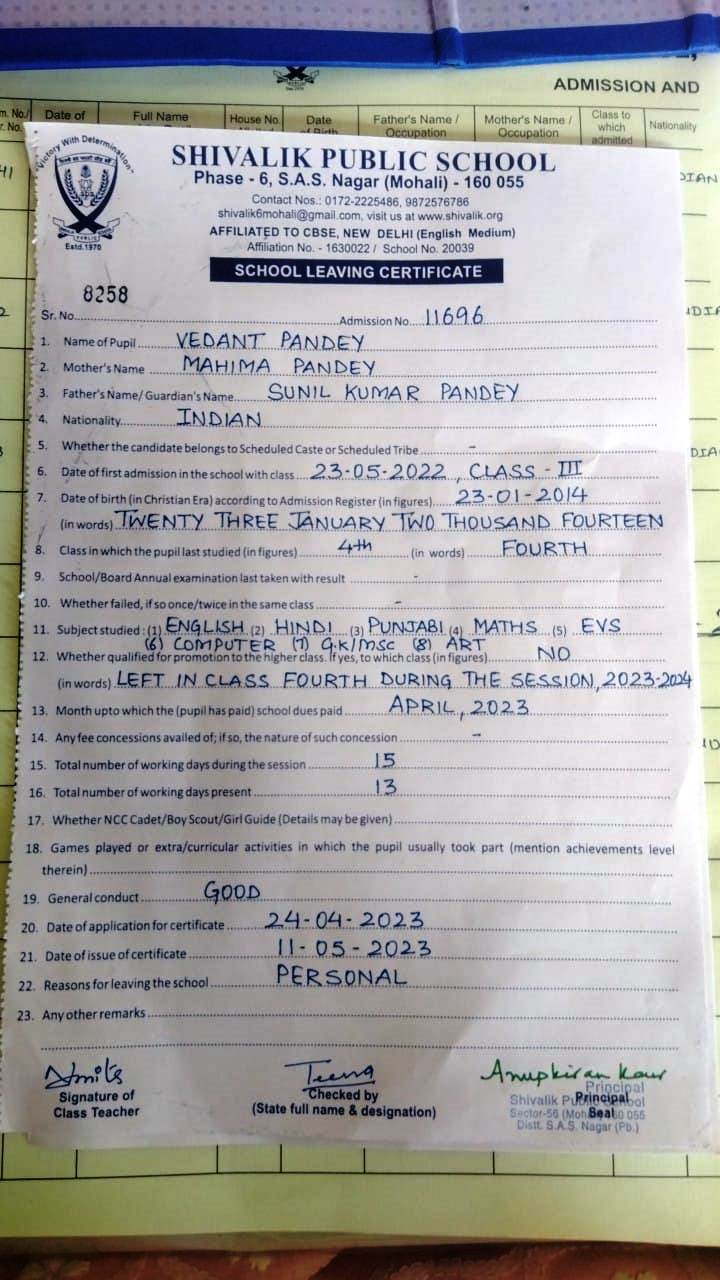 ADMISSION AND
m. No./ Date of Full Name House No. Date Father's Name / Mother's Name / Class to Nationality
r. No. of Birth Occupation Occupation which
admitted
Victory With Determination
PUBLIC
Estd.1970
SHIVALIK PUBLIC SCHOOL
Phase - 6, S.A.S. Nagar (Mohali) - 160 055
Contact Nos.: 0172-2225486, 9872576786
shivalik6mohali@gmail.com, visit us at www.shivalik.org
AFFILIATED TO CBSE, NEW DELHI (English Medium)
Affiliation No. - 1630022 / School No. 20039
SCHOOL LEAVING CERTIFICATE
8258
Sr. No. Admission No. 11696
1. Name of Pupil VEDANT PANDEY
2. Mother's Name MAHIMA PANDEY
3. Father's Name/ Guardian's Name SUNIL KUMAR PANDEY
4. Nationality INDIAN
5. Whether the candidate belongs to Scheduled Caste or Scheduled Tribe -
6. Date of first admission in the school with class 23-05-2022, CLASS - III
7. Date of birth (in Christian Era) according to Admission Register (in figures) 23-01-2014
(in words) TWENTY THREE JANUARY TWO THOUSAND FOURTEEN
8. Class in which the pupil last studied (in figures) 4th (in words) FOURTH
9. School/Board Annual examination last taken with result -
10. Whether failed, if so once/twice in the same class -
11. Subject studied : (1) ENGLISH (2) HINDI (3) PUNJABI (4) MATHS (5) EVS
(6) COMPUTER (7) G.K/MSC (8) ART
12. Whether qualified for promotion to the higher class. If yes, to which class (in figures) NO
(in words) LEFT IN CLASS FOURTH DURING THE SESSION, 2023-2024
13. Month upto which the (pupil has paid) school dues paid APRIL, 2023
14. Any fee concessions availed of; if so, the nature of such concession -
15. Total number of working days during the session 15
16. Total number of working days present 13
17. Whether NCC Cadet/Boy Scout/Girl Guide (Details may be given)
18. Games played or extra/curricular activities in which the pupil usually took part (mention achievements level
therein)
19. General conduct GOOD
20. Date of application for certificate 24-04-2023
21. Date of issue of certificate 11-05-2023
22. Reasons for leaving the school PERSONAL
23. Any other remarks
Teena Anupkiran Kaur
Signature of Class Teacher
Checked by
(State full name & designation)
Principal
Seal
Principal
Shivalik Public School
Sector-56 (Mohali) 160 055
Distt. S.A.S. Nagar (Pb.)